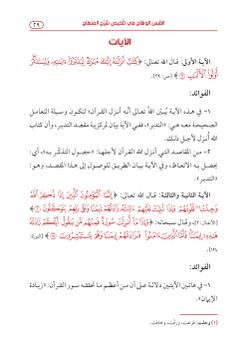 القبس الوهاج في تلخيص شرح المنهاج
٢٩
الآيات
الآية الأولى: قال الله تعالى: ﴿كِتَٰبٌ أَنزَلْنَٰهُ إِلَيْكَ مُبَٰرَكٌ لِّيَدَّبَّرُوٓا۟ ءَايَٰتِهِۦ وَلِيَتَذَكَّرَ
أُو۟لُوا۟ ٱلْأَلْبَٰبِ﴾ [ص: ٢٩].
الفوائد:
١- في هذه الآية يُبيّن اللهُ تعالى أنَّه أنزل القرآن؛ لتكون وسيلة التعامل
الصحيحة معه هي: «التدبر»، ففي الآية بيان مركزية مقصد التدبر، وأن كتاب
الله أُنزل لأجل ذلك.
٢- من المقاصد التي أنزل الله القرآن لأجلها: «حصول التذكُّر به»، أي:
يحصل به الاتعاظ، وفي الآية بيان الطريق للوصول إلى هذا المقصد، وهو:
«التدبر».
الآية الثانية والثالثة: قال الله تعالى: ﴿إِنَّمَا ٱلْمُؤْمِنُونَ ٱلَّذِينَ إِذَا ذُكِرَ ٱللَّهُ
وَجِلَتْ قُلُوبُهُمْ وَإِذَا تُلِيَتْ عَلَيْهِمْ ءَايَٰتُهُۥ زَادَتْهُمْ إِيمَٰنًا وَعَلَىٰ رَبِّهِمْ يَتَوَكَّلُونَ﴾
[الأنفال: ٢]، وقال سبحانه: ﴿وَإِذَا مَآ أُنزِلَتْ سُورَةٌ فَمِنْهُم مَّن يَقُولُ أَيُّكُمْ زَادَتْهُ
هَٰذِهِۦٓ إِيمَٰنًا فَأَمَّا ٱلَّذِينَ ءَامَنُوا۟ فَزَادَتْهُمْ إِيمَٰنًا وَهُمْ يَسْتَبْشِرُونَ﴾ [التوبة:
الفوائد:
١- في هاتين الآيتين دلالة على أن من أعظم ما تحققه سور القرآن: «زيادة
الإيمان».
وجلت: فزعت، ورقّت، وخافت.